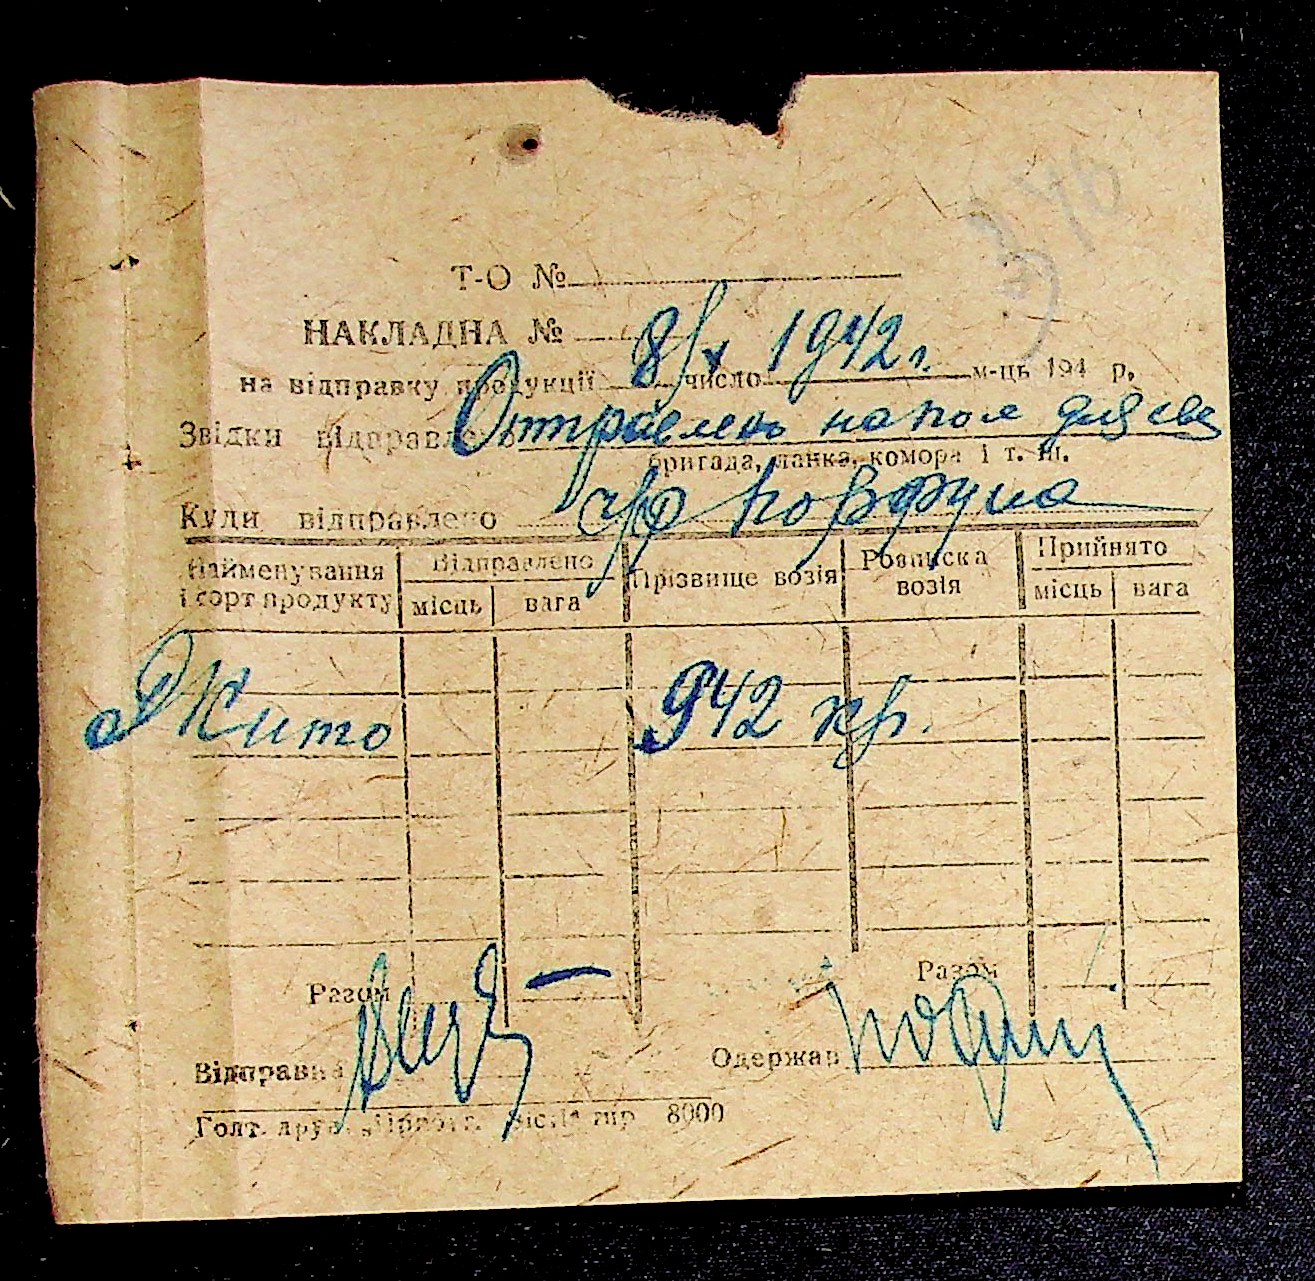 376
Т-О №
НАКЛАДНА №
8/X 1942 г.
на відправку продукції число м-ць 194 р.
Звідки відправлено Отправлено на поле для
бригада, ланка, комора і т. ін.
Куди відправлено ч/р
Найменування і сорт продукту Відправлено місць вага Прізвище возія Розписка возія Прийнято місць вага
Жито 942 кг.
Разом Разом
Відправив Одержав
Голт. друк. 8000